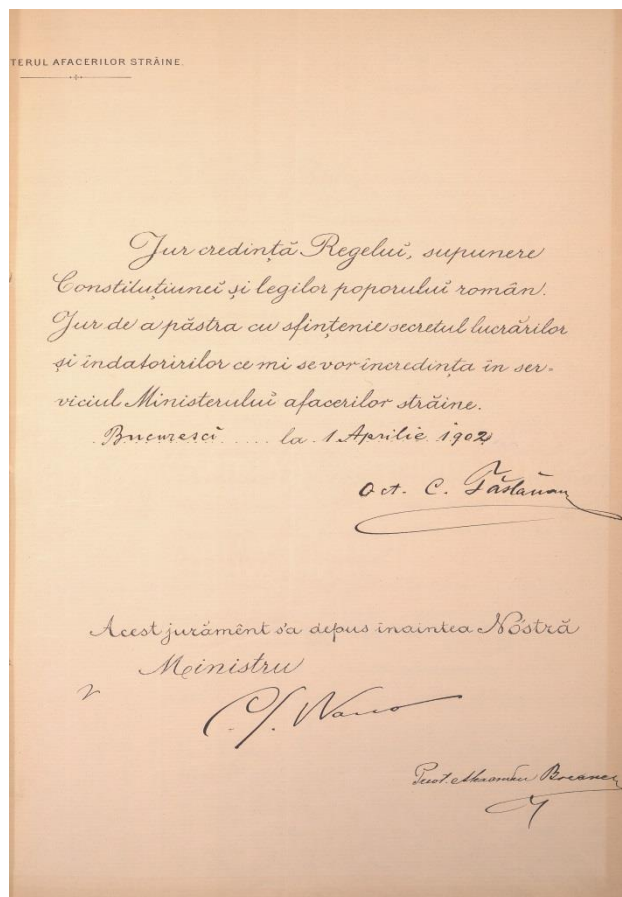 TERUL AFACERILOR STRĂINE.
Jur credință Regeluĭ, supunere
Constituțiuneĭ și legilor poporuluĭ român.
Jur de a păstra cu sfințenie secretul lucrărilor
și îndatoririlor ce mi se vor încredința în ser-
viciul Ministeruluĭ afacerilor străine.
Bucurescĭ la 1 Aprilie 1902
Oct. C. Tăslăuanu
Acest jurămênt s'a depus înaintea Nóstră
Ministru